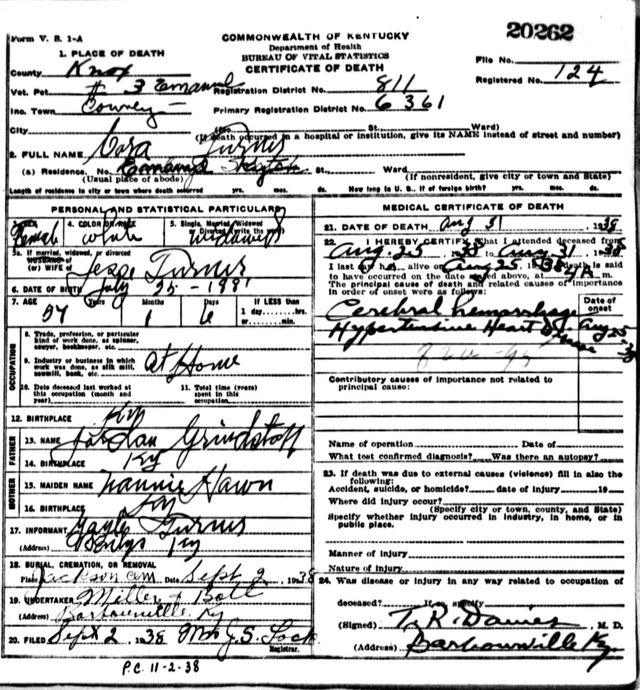 Form V. S. 1-A
COMMONWEALTH OF KENTUCKY
20262
Department of Health
BUREAU OF VITAL STATISTICS
CERTIFICATE OF DEATH
1. PLACE OF DEATH
File No.
County Knox
Registered No. 124
Vot. Pct. # 3 Emanuel
Registration District No. 811
Inc. Town
Primary Registration District No. 6361
City No. St. Ward)
(If death occurred in a hospital or institution, give its NAME instead of street and number)
2. FULL NAME Cora Turner
(a) Residence. No. St. Ward
(Usual place of abode) (If nonresident, give city or town and State)
Length of residence in city or town where death occurred yrs. mos. ds. How long in U. S., if of foreign birth? yrs. mos. ds.
PERSONAL AND STATISTICAL PARTICULARS
3. SEX Female
4. COLOR OR RACE white
5. Single, Married, Widowed or Divorced (write the word) widowed
5a. If married, widowed, or divorced
HUSBAND of
(or) WIFE of Jesse Turner
6. DATE OF BIRTH July 25 - 1881
7. AGE 57 Years 1 Months 6 Days
If LESS than
1 day......hrs.
or......min.
OCCUPATION
8. Trade, profession, or particular
kind of work done, as spinner,
sawyer, bookkeeper, etc.
9. Industry or business in which
work was done, as silk mill,
sawmill, bank, etc.
at Home
10. Date deceased last worked at
this occupation (month and
year)
11. Total time (years)
spent in this
occupation
12. BIRTHPLACE Ky
FATHER
13. NAME Jordan Grindstaff
14. BIRTHPLACE Ky
MOTHER
15. MAIDEN NAME Nannie Hawn
16. BIRTHPLACE Ky
17. INFORMANT Turner
(Address) Ky
18. BURIAL, CREMATION, OR REMOVAL
Place Jackson Cem. Date Sept 2, 1938
19. UNDERTAKER Miller &
(Address) Barbourville Ky
20. FILED Sept 2, 1938 Mrs J. S. Lock
Registrar.
MEDICAL CERTIFICATE OF DEATH
21. DATE OF DEATH Aug 31 1938
22. I HEREBY CERTIFY, That I attended deceased from
Aug. 25, 1938 to Aug 31, 1938
I last saw h alive on Aug 25, 1938, death is said
to have occurred on the date stated above, at m.
The principal cause of death and related causes of importance
in order of onset were as follows:
Date of
onset
Cerebral hemorrhage
Hypertensive Heart Disease Aug 25-38
Contributory causes of importance not related to
principal cause:
Name of operation Date of
What test confirmed diagnosis? Was there an autopsy?
23. If death was due to external causes (violence) fill in also the
following:
Accident, suicide, or homicide? date of injury 19
Where did injury occur?
(Specify city or town, county, and State)
Specify whether injury occurred in industry, in home, or in
public place.
Manner of injury
Nature of injury
24. Was disease or injury in any way related to occupation of
deceased? If so, specify
(Signed) T. R. Davies, M. D.
(Address) Barbourville Ky.
P.C. 11-2-38